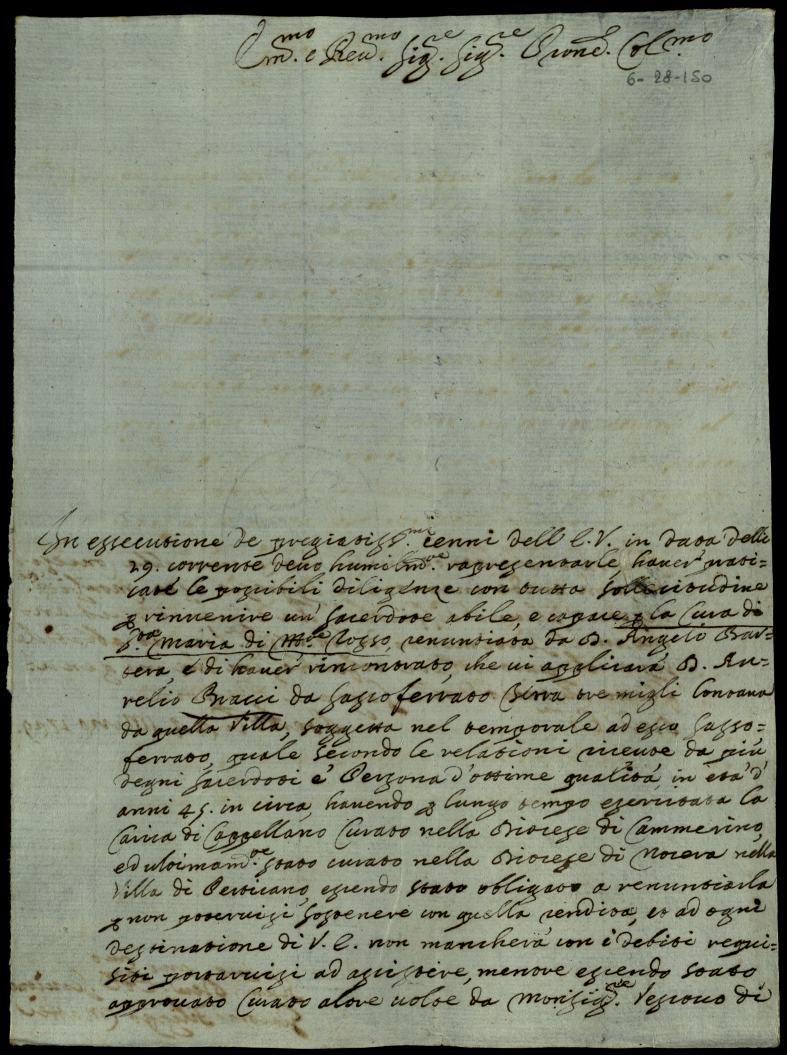 Em.mo e Rev.mo Sig.re Sig.re Prone Col.mo
6-28-150
In essecutione de pregiatiss.mi cenni dell'E.V. in data delli
29. corrente devo humilm.te rapresentarle haver prati=
cate le possibili diligenze con tutta sollecitudine
p rinvenire un sacerdote abile, e capace p la Cura di
S.ta Maria di M.te Rosso, renuntiata da D. Angelo Bar=
tera, e di haver rincontrato, che vi applicará D. Au=
relio Bracci da Sassoferrato Terra tre migli lontana
da quella Villa, soggetta nel temporale ad esso Sasso=
ferrato, quale secondo le relationi riceute da piú
degni sacerdoti é Persona d'ottime qualitá, in etá d'
anni 45. in circa, havendo p lungo tempo esercitata la
Carica di Cappellano Curato nella Diocese di Cammerino,
ed ultimam.te stato curato nella Diocese di Nocera nella
Villa di Perticano, essendo stato obligato a renuntiarla
p non potervisi sostenere con quella rendita, et ad ogni
destinatione di V.E. non mancherá con i debiti requi=
siti portarvisi ad assistere, mentre essendo stato
approvato Curato altre volte da Monsig.re Vescovo di